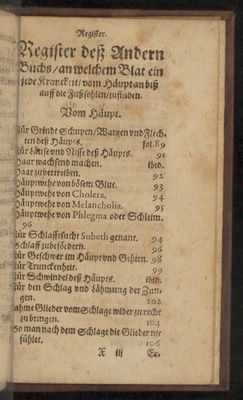 Register.
Register deß Andern
Buchs / an welchem Blat ein
jede Kranckeit / vom Häupt an biß
auff die Fußsohlen / zufinden.
Vom Häupt.
Für Grinde Schupen / Wartzen vnd Flech-
ten deß Häupts. fol. 89
Für Läuse vnd Nisse deß Häupts. 91
Haar wachsend machen. ibid.
Haar zuvertreiben. 92
Häuptwehe von bösem Blut. 93
Häuptwehe von Cholera. 94
Häuptwehe von Melancholia. 95
Häuptwehe von Phlegma oder Schleim.
96
Für Schlaffesucht Subeth genant. 94
Schlaff zubefördern. 96
Für Geschwer im Häupt vnd Gehirn. 98
Für Trunckenheit. 99
Für Schwindel deß Häupts. ibid.
Für den Schlag vnd Lähmung der Zun-
gen. 102
ahme Glieder vom Schlage wider zu recht
zu bringen. 104
So man nach dem Schlage die Glieder nie
fühlet. 106
X iij Er.